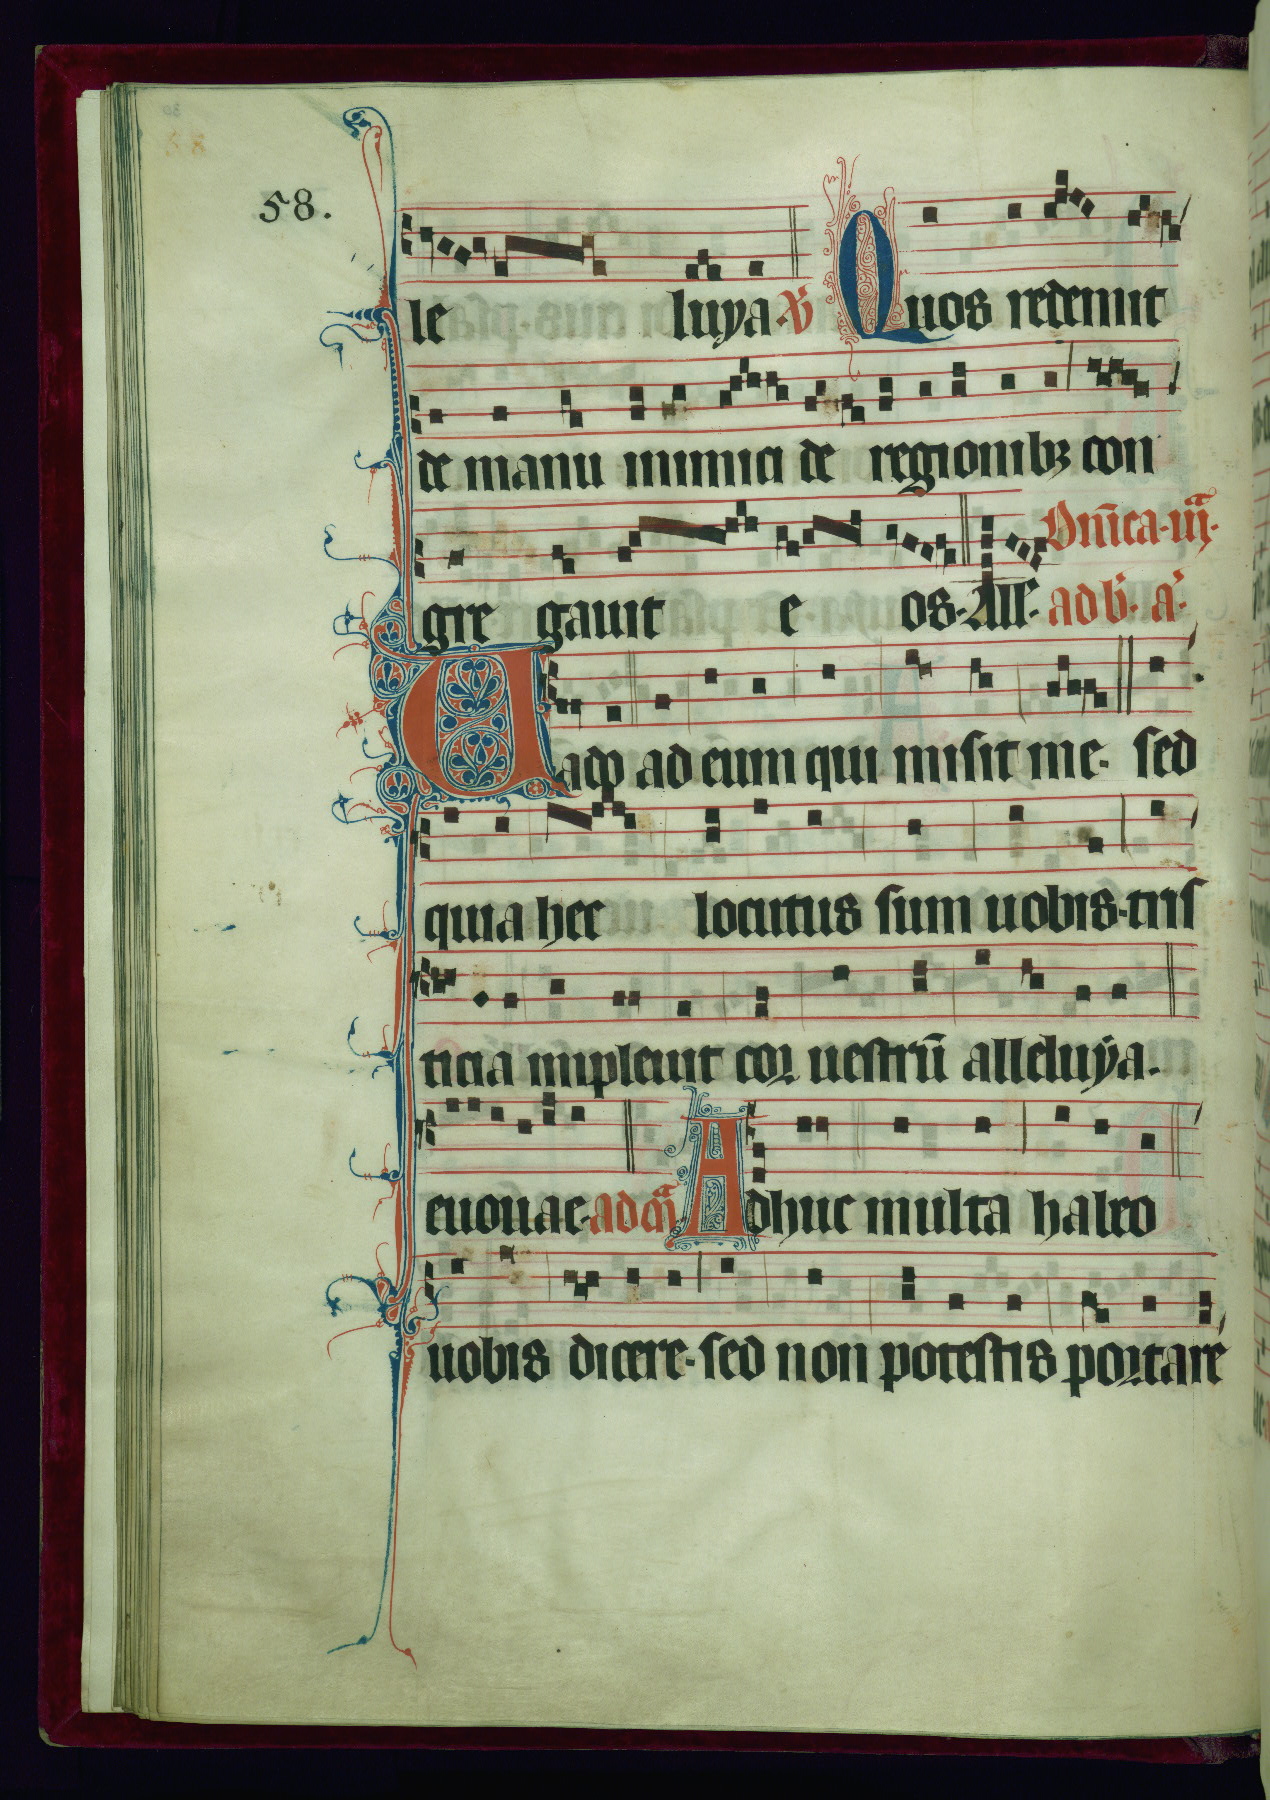 58.
le luya. ℣ Quos redemit
de manu inimici de regionibꝫ con
Dñica. iiijª.
gre gauit e os. All'. ad b'. a'.
Uado ad eum qui misit me. sed
quia hec locutus sum uobis. tris
ticia impleuit cor uestrū alleluya.
euouae. ad mª. Adhuc multa habeo
uobis dicere. sed non potestis portare